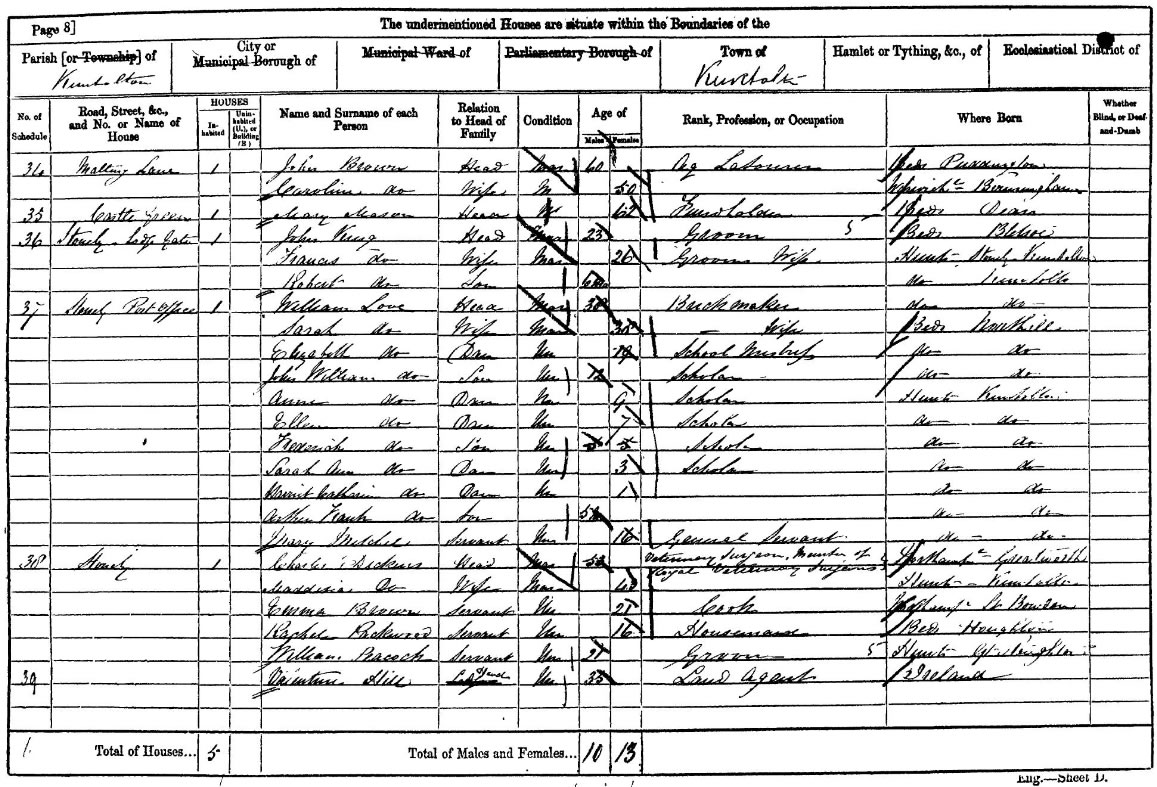 Page 8]
The undermentioned Houses are situate within the Boundaries of the
Parish [or Township] of
City or Municipal Borough of
Municipal Ward of
Parliamentary Borough of
Town of
Hamlet or Tything, &c., of
Ecclesiastical District of
Kimbolton
Kimbolton
No. of Schedule
Road, Street, &c., and No. or Name of House
HOUSES
In-habited
Unin-habited (U.), or Building (B)
Name and Surname of each Person
Relation to Head of Family
Condition
Age of
Males
Females
Rank, Profession, or Occupation
Where Born
Whether Blind, or Deaf-and-Dumb
34 Malting Lane 1 John Brown Head Mar 60 Ag Labourer Beds Puddington
Caroline do Wife M 50 Birmingham
35 Castle Green 1 Mary Mason Head W Beds Dean
36 Stonely Lodge Gate 1 John King Head Mar 23 Groom Beds Bletsoe
Frances do Wife Mar 26 Grooms Wife Hunts Stonely Kimbolton
Robert do Son do Kimbolton
37 Stonely Post Office 1 William Love Head Mar 38 Brickmaker do do
Sarah do Wife Mar Wife Beds
Elizabeth do Daur Un 19 School Mistress do do
John William do Son Un 12 Scholar do do
Anne do Daur Un 9 Scholar Hunts Kimbolton
Ellen do Daur Un 7 Scholar do do
Frederick do Son Un 5 Scholar do do
Sarah Ann do Daur Un 3 Scholar do do
Harriet Catharine do Daur Un 1 do do
Arthur Frank do Son do do
Mary Mitchel Servant Un 16 General Servant do do
38 Stonely 1 Charles Dickens Head Mar Veterinary Surgeon, Member of Royal Veterinary Surgeons
Do Wife Mar Hunts Kimbolton
Emma Brown Servant Un 21 Cook
Rachel Packwood Servant Un 16 Housemaid Beds Houghton
William Peacock Servant Un 21 Groom Hunts
39 Hill Head Un 35 Land Agent Ireland
Total of Houses... 5
Total of Males and Females... 10 13
Eng.—Sheet D.